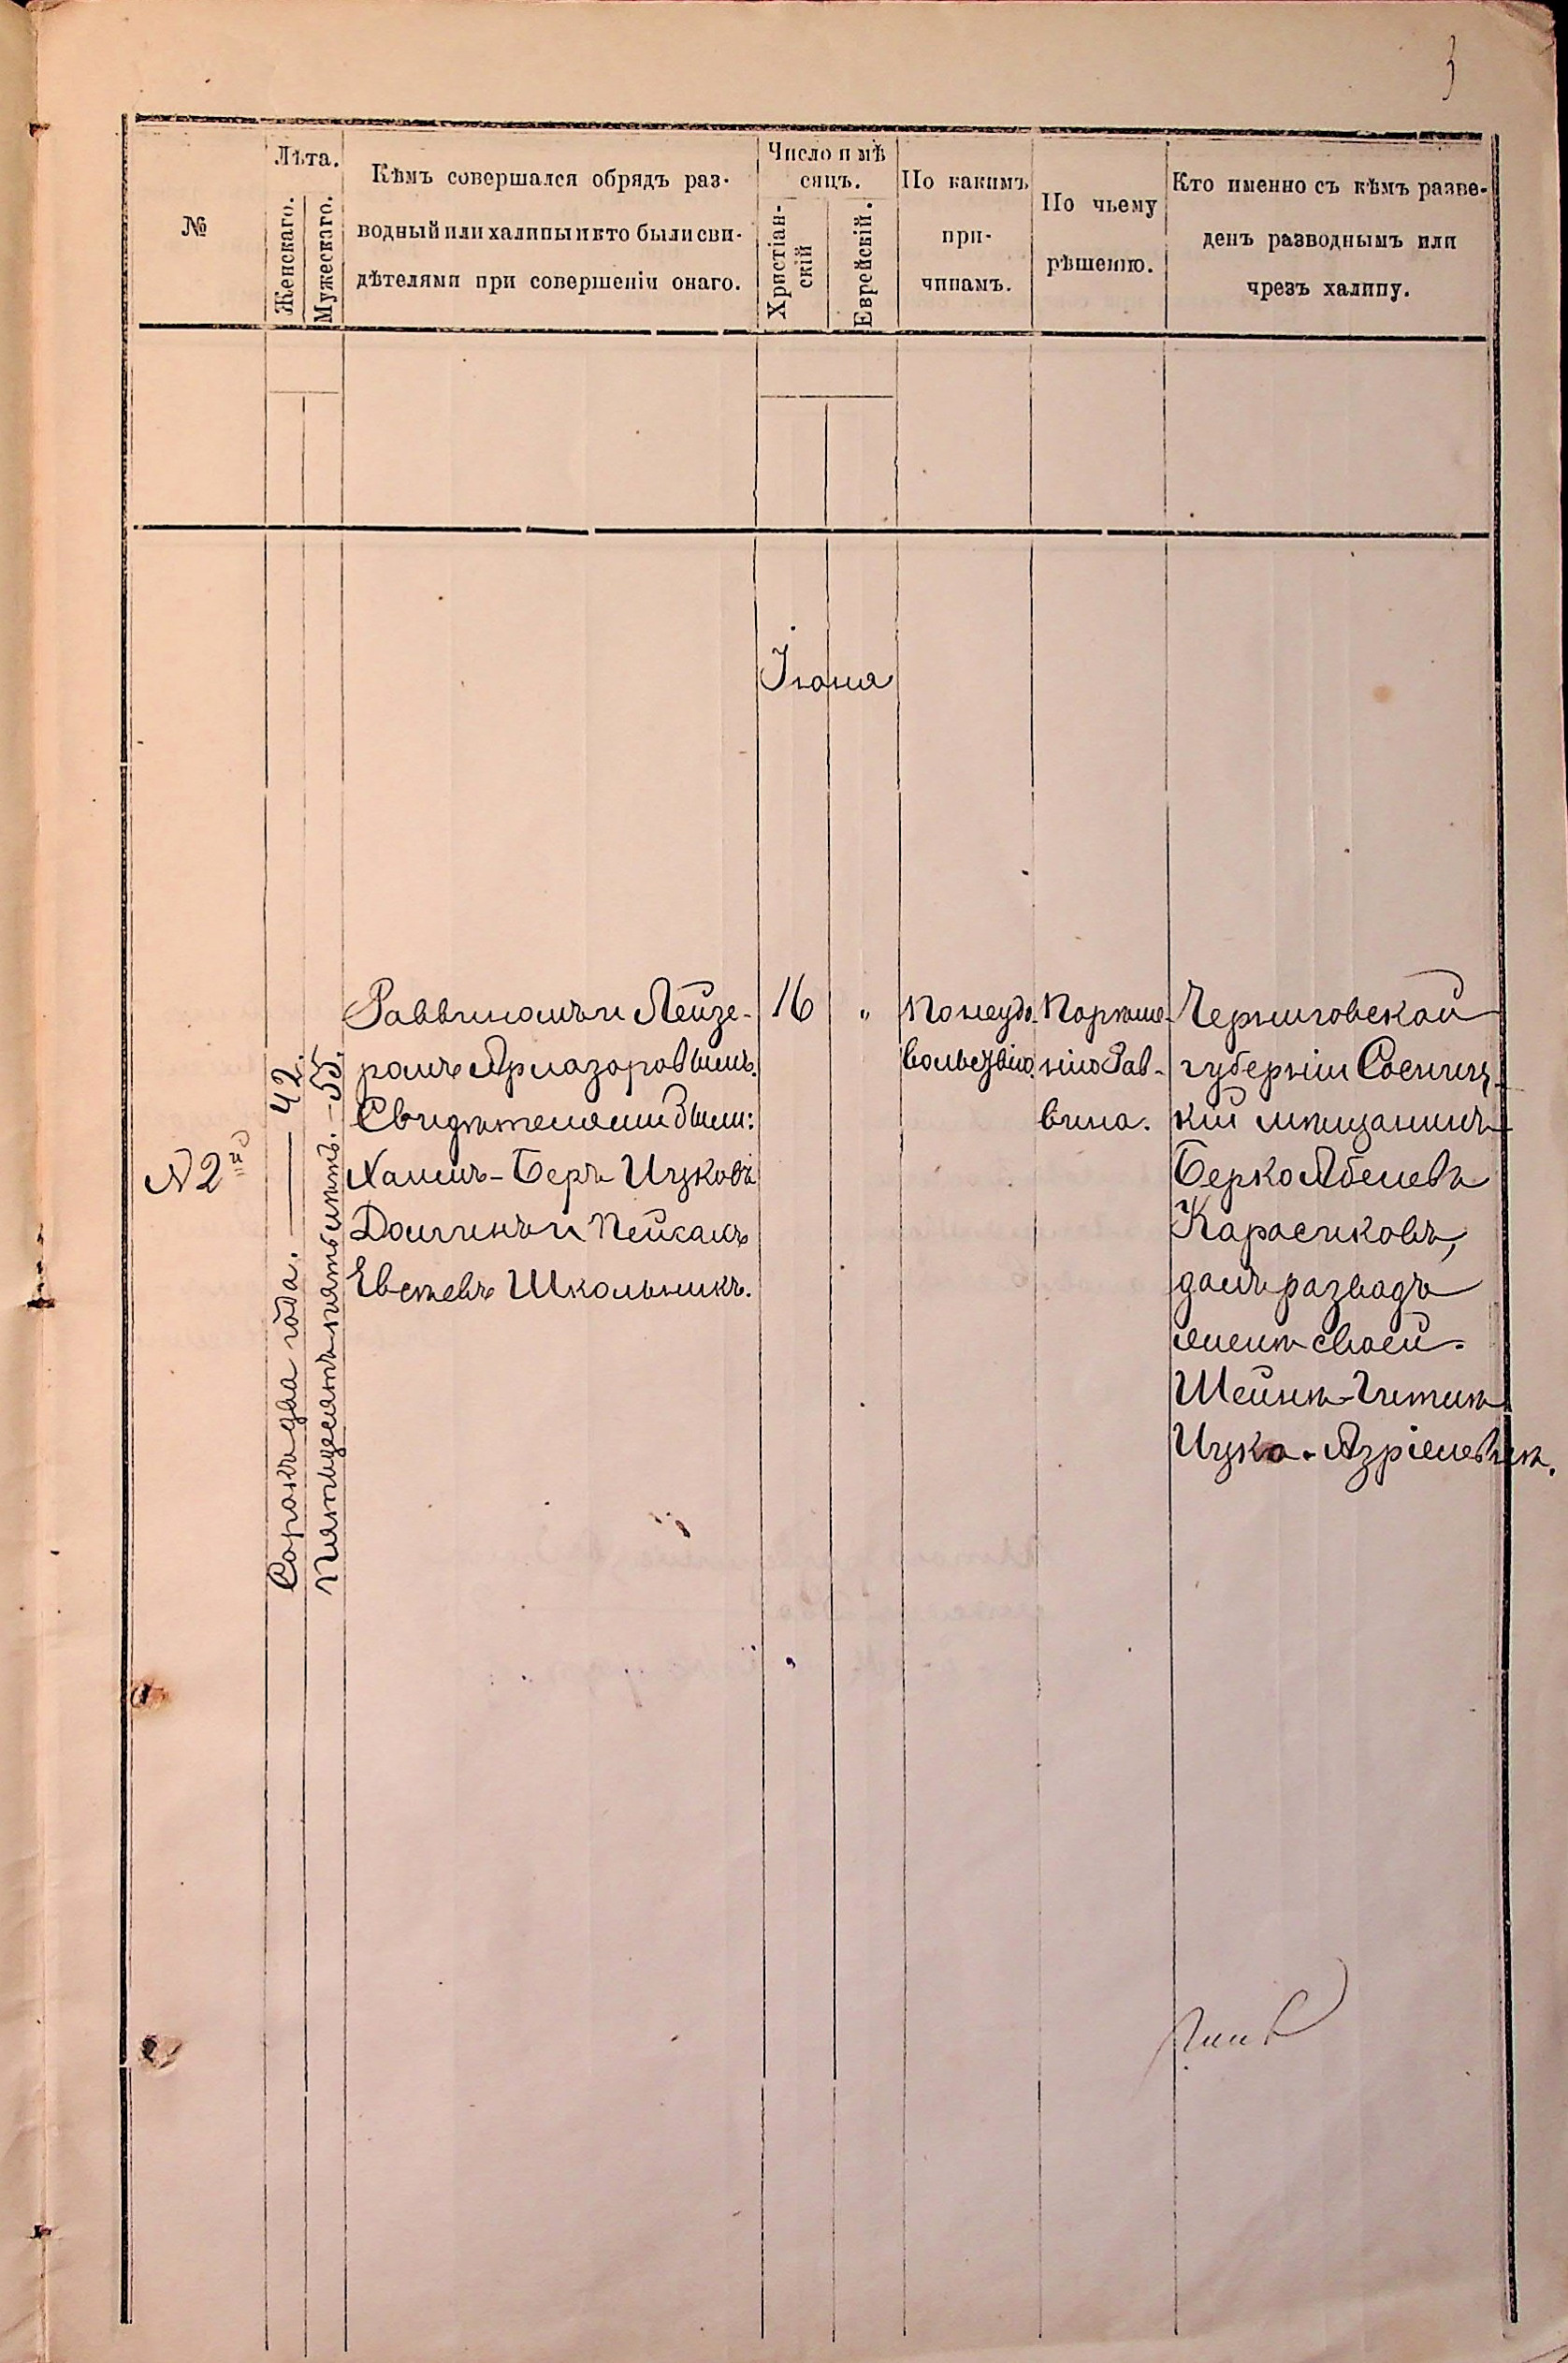 3
№
Лѣта.
Женскаго.
Мужескаго.
Кѣмъ совершался обрядъ раз-
водный или халицы и кто были сви-
дѣтелями при совершеніи онаго.
Число и мѣ
сяцъ.
Христіан-
скій
Еврейскій.
По какимъ
при-
чинамъ.
По чьему
рѣшенію.
Кто именно съ кѣмъ разве-
денъ разводнымъ или
чрезъ халицу.
Іюня
№ 2й
Сорокъ два года. — 42.
Пятьдесятъ пять лѣтъ. — 55.
Раввиномъ Лейзе-
ромъ
Свидѣтелями были:
Хаимъ-Беръ Ицковъ
Долгинъ и Пейсахъ
Евсѣевъ Школьникъ.
16
"
По неудо-
вольствію.
По рѣше-
нію Рав-
вина.
Черниговской
губерніи Сосниц-
кій мѣщанинъ
Берко Абелевъ
Карасиковъ,
далъ разводъ
женѣ своей
Шейнѣ-Гитлѣ
Ицко-Азріелевнѣ.